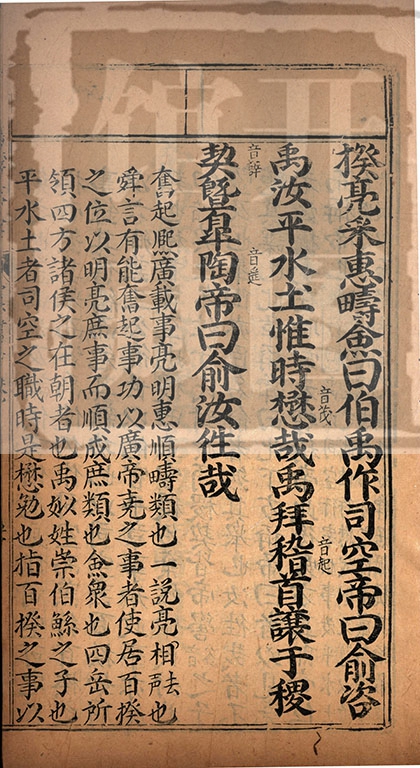 揆亮采惠疇僉曰伯禹作司空帝曰俞咨
禹汝平水土惟時懋哉禹拜稽首讓于稷
音茂
音起
契暨皐陶帝曰俞汝往哉
音薛
音遥
奮起熈廣載事亮明惠順疇類也一説亮相法也
舜言有能奮起事功以廣帝堯之事者使居百揆
之位以明亮庶事而順成庶類也僉衆也四岳所
領四方諸侯之在朝者也禹姒姓崇伯鯀之子也
平水土者司空之職時是懋勉也指百揆之事以